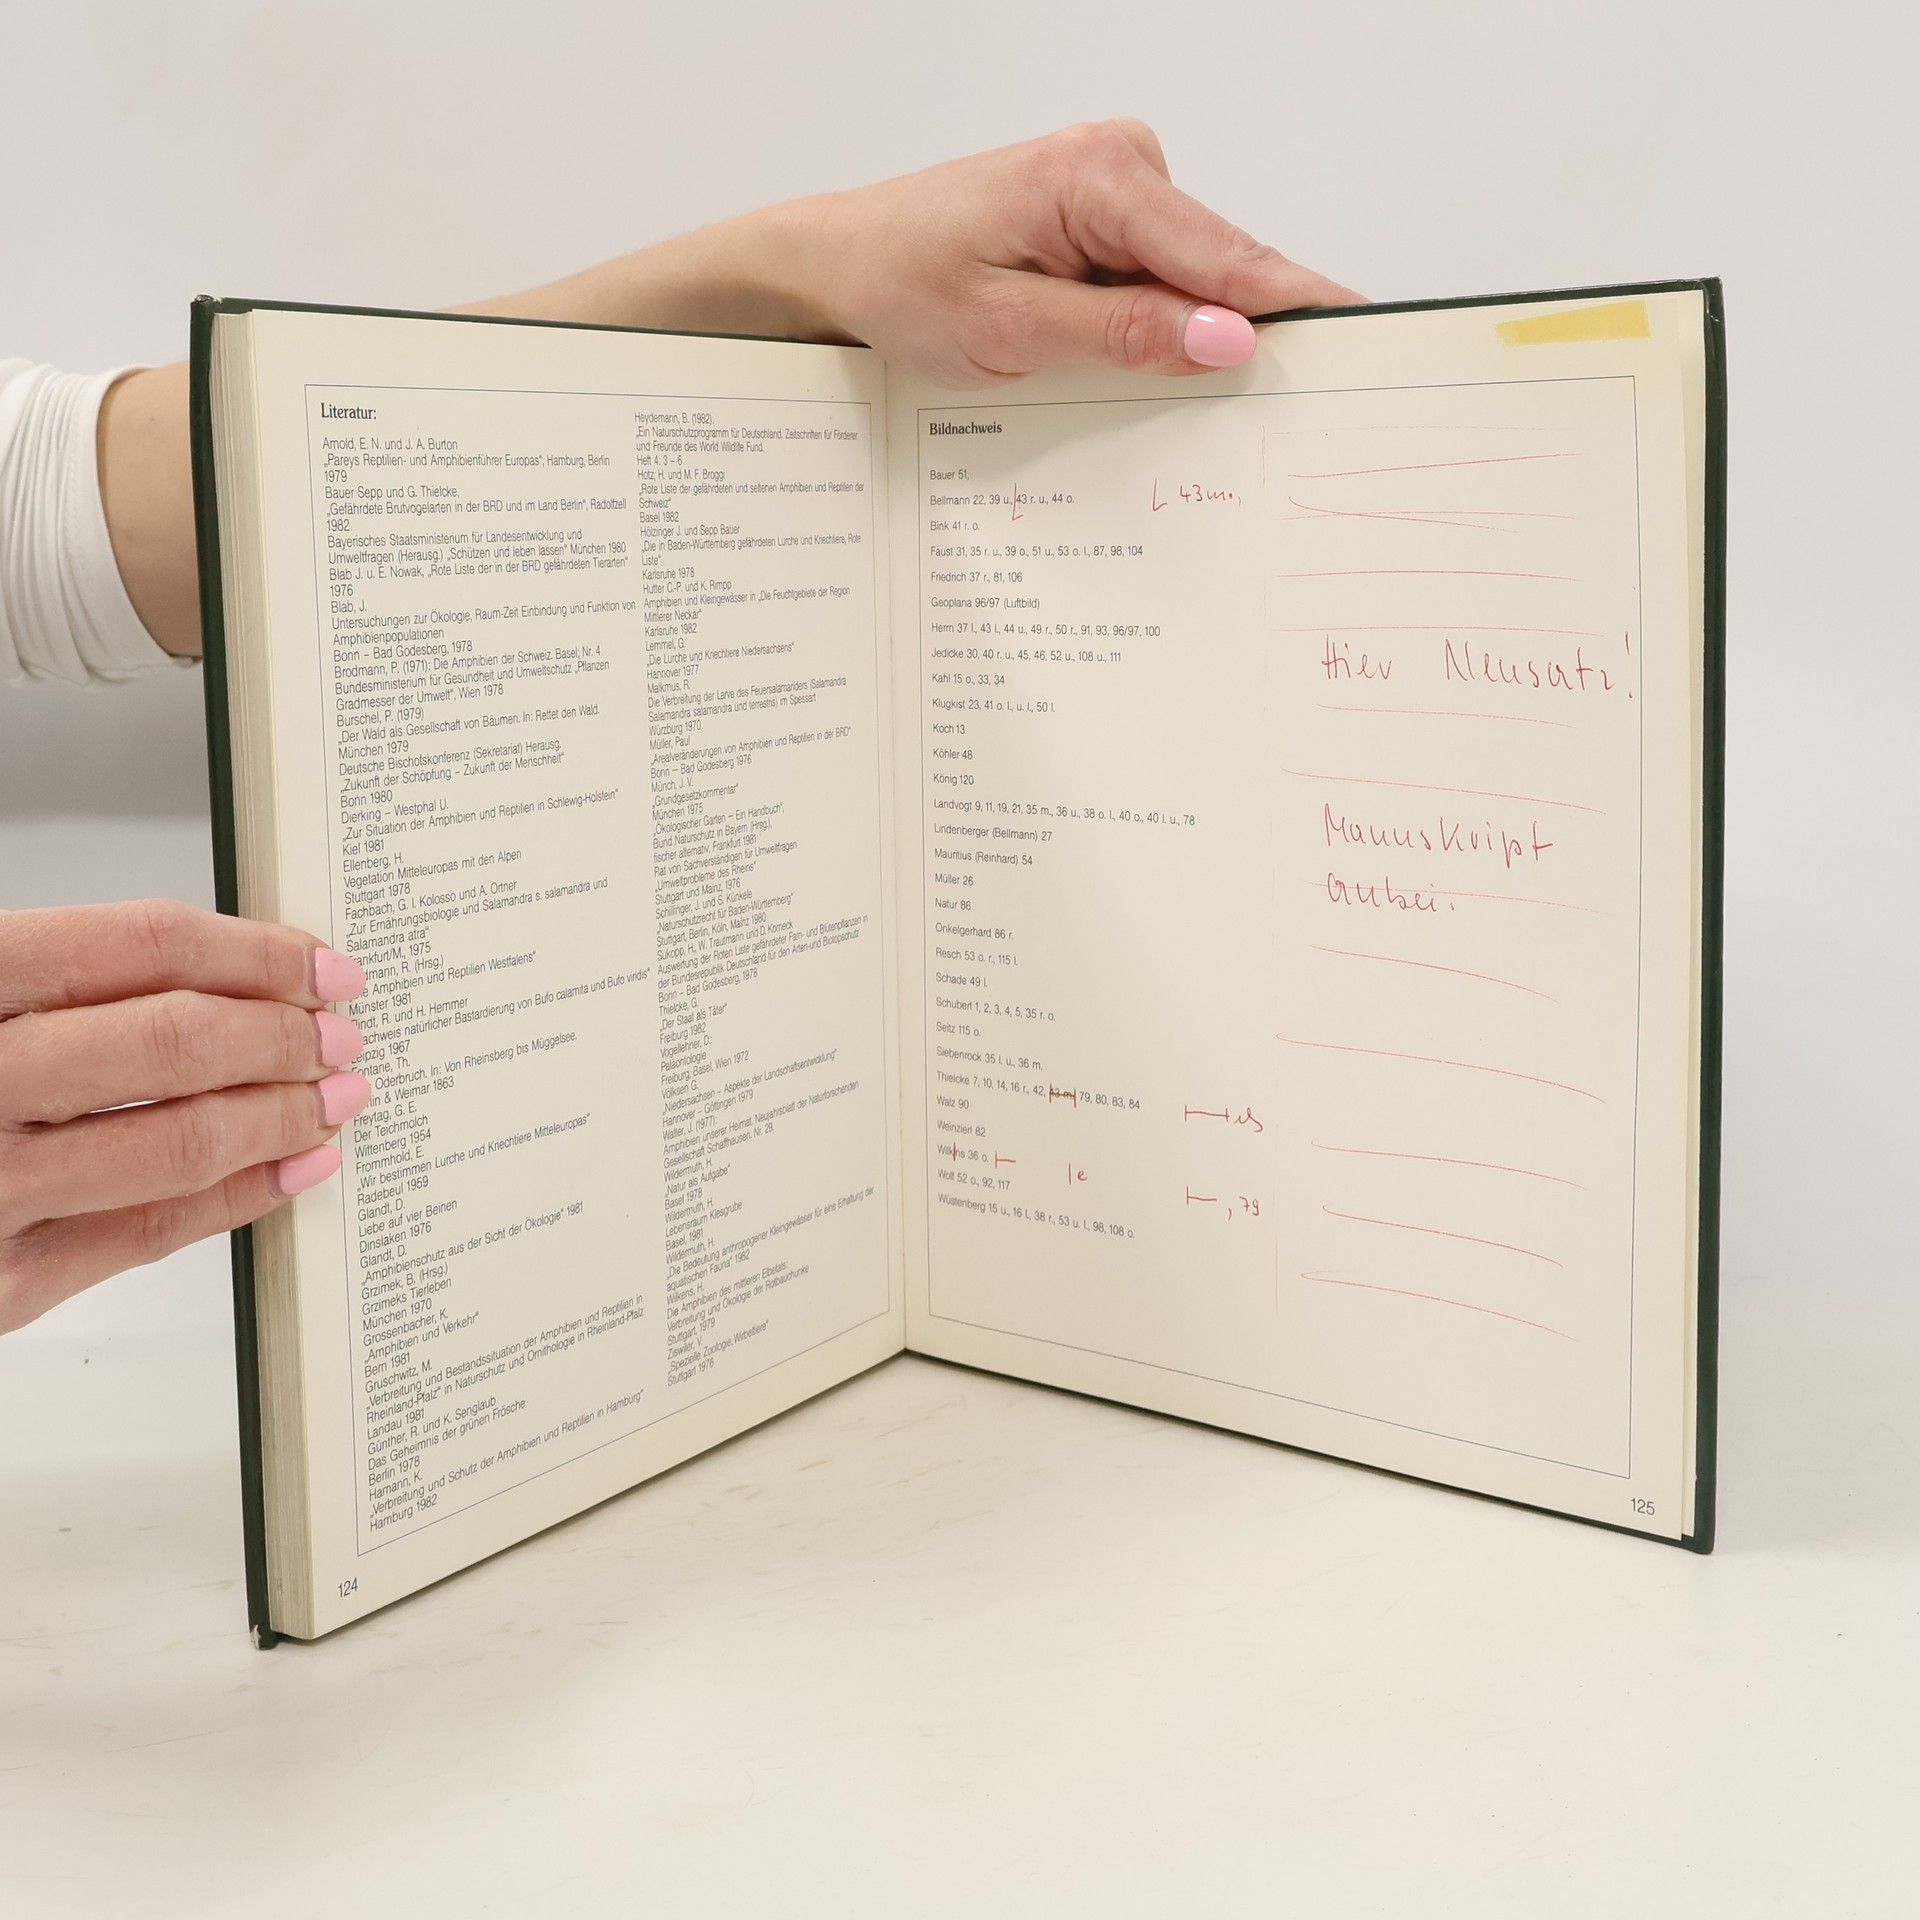 Literatur:
Arnold, E. N. und J. A. Burton
„Pareys Reptilien- und Amphibienführer Europas“, Hamburg, Berlin
1979
Bauer Sepp und G. Thielcke,
„Gefährdete Brutvogelarten in der BRD und im Land Berlin“, Radolfzell
1982
Bayerisches Staatsministerium für Landesentwicklung und
Umweltfragen (Herausg.) „Schützen und leben lassen“ München 1980
Blab J. u. E. Nowak, „Rote Liste der in der BRD gefährdeten Tierarten“
1976
Blab, J.
Untersuchungen zur Ökologie, Raum-Zeit Einbindung und Funktion von
Amphibienpopulationen
Bonn – Bad Godesberg, 1978
Brodmann, P. (1971): Die Amphibien der Schweiz. Basel; Nr. 4
Bundesministerium für Gesundheit und Umweltschutz „Pflanzen
Gradmesser der Umwelt“, Wien 1978
Burschel, P. (1979)
„Der Wald als Gesellschaft von Bäumen. In: Rettet den Wald.
München 1979
Deutsche Bischofskonferenz (Sekretariat) Herausg.
„Zukunft der Schöpfung – Zukunft der Menschheit“
Bonn 1980
Dierking – Westphal U.
„Zur Situation der Amphibien und Reptilien in Schlewig-Holstein“
Kiel 1981
Ellenberg, H.
Vegetation Mitteleuropas mit den Alpen
Stuttgart 1978
Fachbach, G. I. Kolosso und A. Ortner
„Zur Ernährungsbiologie und Salamandra s. salamandra und
Salamandra atra“
rankfurt/M., 1975
dmann, R. (Hrsg.)
e Amphibien und Reptilien Westfalens“
Münster 1981
indt, R. und H. Hemmer
achweis natürlicher Bastardierung von Bufo calamita und Bufo viridis“
eipzig 1967
ontane, Th.
Oderbruch. In: Von Rheinsberg bis Müggelsee.
in & Weimar 1863
Freytag, G. E.
Der Teichmolch
Wittenberg 1954
Frommhold, E.
„Wir bestimmen Lurche und Kriechtiere Mitteleuropas“
Radebeul 1959
Glandt, D.
Liebe auf vier Beinen
Dinslaken 1976
Glandt, D.
„Amphibienschutz aus der Sicht der Ökologie“ 1981
Grzimek, B. (Hrsg.)
Grzimeks Tierleben
München 1970
Grossenbacher, K.
„Amphibien und Verkehr“
Bern 1981
Gruschwitz, M.
„Verbreitung und Bestandssituation der Amphibien und Reptilien in
Rheinland-Pfalz“ in Naturschutz und Ornithologie in Rheinland-Pfalz
Landau 1981
Günther, R. und K. Senglaub
Das Geheimnis der grünen Frösche
Berlin 1978
Hamann, K.
„Verbreitung und Schutz der Amphibien und Reptilien in Hamburg“
Hamburg 1982
Heydemann, B. (1982).
„Ein Naturschutzprogramm für Deutschland. Zeitschriften für Förderer
und Freunde des World Wildlife Fund.
Heft 4: 3 – 6
Hotz, H. und M. F. Broggi
„Rote Liste der gefährdeten und seltenen Amphibien und Reptilien der
Schweiz“
Basel 1982
Hölzinger J. und Sepp Bauer
„Die in Baden-Württemberg gefährdeten Lurche und Kriechtiere, Rote
Liste“
Karlsruhe 1978
Hutter C.-P. und K. Rimpp
Amphibien und Kleingewässer in „Die Feuchtgebiete der Region
Mittlerer Neckar“
Karlsruhe 1982
Lemmel, G.
„Die Lurche und Kriechtiere Niedersachsens“
Hannover 1977
Malkmus, R.
Die Verbreitung der Larve des Feuersalamanders (Salamandra
Salamandra salamandra und terrestris) im Spessart
Würzburg 1970
Müller, Paul
„Arealveränderungen von Amphibien und Reptilien in der BRD“
Bonn – Bad Godesberg 1976
Münch, J. V.
„Grundgesetzkommentar“
München 1975
„Ökologischer Garten – Ein Handbuch“,
Bund Naturschutz in Bayern (Hrsg.),
fischer alternativ, Frankfurt 1981
Rat von Sachverständigen für Umweltfragen
„Umweltprobleme des Rheins“
Stuttgart und Mainz, 1976
Schillinger, J. und S. Künkele
„Naturschutzrecht für Baden-Württemberg“
Stuttgart, Berlin, Köln, Mainz 1980
Sukopp, H., W. Trautmann und D. Korneck
Auswertung der Roten Liste gefährdeter Farn- und Blütenpflanzen in
der Bundesrepublik Deutschland für den Arten-und Biotopschutz
Bonn – Bad Godesberg, 1978
Thielcke, G.
„Der Staat als Täter“
Freiburg 1982
Vogellehner, D.:
Paläontologie
Freiburg, Basel, Wien 1972
Völksen G.
„Niedersachsen – Aspekte der Landschaftsentwicklung“
Hannover – Göttingen 1979
Walter, J. (1977):
Amphibien unserer Heimat. Neujahrsblatt der Naturforschenden
Gesellschaft Schaffhausen. Nr. 29.
Wildermuth, H.
„Natur als Aufgabe“
Basel 1978
Wildermuth, H.
Lebensraum Kiesgrube
Basel, 1981
Wildermuth, H.
„Die Bedeutung anthropogener Kleingewässer für eine Erhaltung der
aquatischen Fauna“ 1982
Wilkens, H.
Die Amphibien des mittleren Elbetals:
Verbreitung und Ökologie der Rotbauchunke
Stuttgart, 1979
Ziswiler, V.
„Spezielle Zoologie, Wirbeltiere“
Stuttgart 1976
124
Bildnachweis
Bauer 51,
Bellmann 22, 39 u., 43 r. u., 44 o. 43 m.,
Bink 41 r. o.
Faust 31, 35 r. u., 39 o., 51 u., 53 o. l., 87, 98, 104
Friedrich 37 r., 81, 106
Geoplana 96/97 (Luftbild)
Herrn 37 l., 43 l., 44 u., 49 r., 50 r., 91, 93, 96/97, 100
Jedicke 30, 40 r. u., 45, 46, 52 u., 108 u., 111
Kahl 15 o., 33, 34
Klugkist 23, 41 o. l., u. l., 50 l.
Koch 13
Köhler 48
König 120
Landvogt 9, 11, 19, 21, 35 m., 36 u., 38 o. l., 40 o., 40 l. u., 78
Lindenberger (Bellmann) 27
Mauritius (Reinhard) 54
Müller 26
Natur 86
Onkelgerhard 86 r.
Resch 53 o. r., 115 l.
Schade 49 l.
Schubert 1, 2, 3, 4, 5, 35 r. o.
Seitz 115 o.
Siebenrock 35 l. u., 36 m.
Thielcke 7, 10, 14, 16 r., 42, 43 m, 79, 80, 83, 84
Walz 90
Weinzierl 82
Wilkns 36 o. e
Wolf 52 o., 92, 117 , 79
Wüstenberg 15 u., 16 l., 38 r., 53 u. l., 98, 108 o.
Hier Neusatz!
Manuskript
anbei.
125